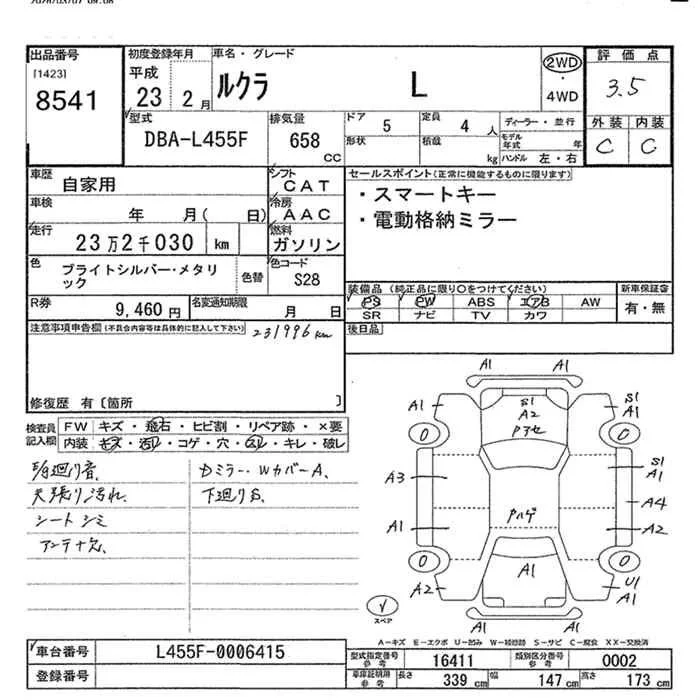 出品番号
[1423]
8541
初度登録年月
平成
23 2月
車名・グレード
ルクラ L
2WD
・
4WD
評価点
3.5
外装 内装
C C
型式
DBA-L455F
排気量
658
CC
ドア 5
定員 4人
ディーラー・並行
形状
積載
kg
モデル年式 年
ハンドル 左・右
車歴
自家用
シフト
CAT
車検
年 月( 日)
冷房
AAC
走行
23万2千030 km
燃料
ガソリン
色
ブライトシルバー・メタリ
ック
色替
色コード
S28
セールスポイント(正常に機能するものに限ります)
・スマートキー
・電動格納ミラー
装備品(純正品に限り○をつけてください)
PS PW ABS エアB AW
SR ナビ TV カワ
新車保証書
有・無
後日品
R券
9,460円
名変通知期限
月 日
注意事項申告欄(不具合内容等は具体的に記入して下さい)
231996km
修復歴 有〔箇所 〕
検査員
記入欄
FW キズ・飛石・ヒビ割・リペア跡・×要
内装 キズ・汚れ・コゲ・穴・スレ・キレ・破レ
天張り汚れ、
シートシミ
アンテナ欠、
Dミラー・WカバーA、
A1 A1
A1 S1 A2 S1 A1
A3 S1 A1
A4
A1 A2
A2 A1 U1 A1
A1 A1
スペア
A－キズ E－エクボ U－凹み W－補修跡 S－サビ C－腐食 XX－交換済
車台番号
L455F-0006415
登録番号
型式指定番号
参考
16411
類別区分番号
参考
0002
車庫証明用
参考
長さ 339 cm
幅 147 cm
高さ 173 cm